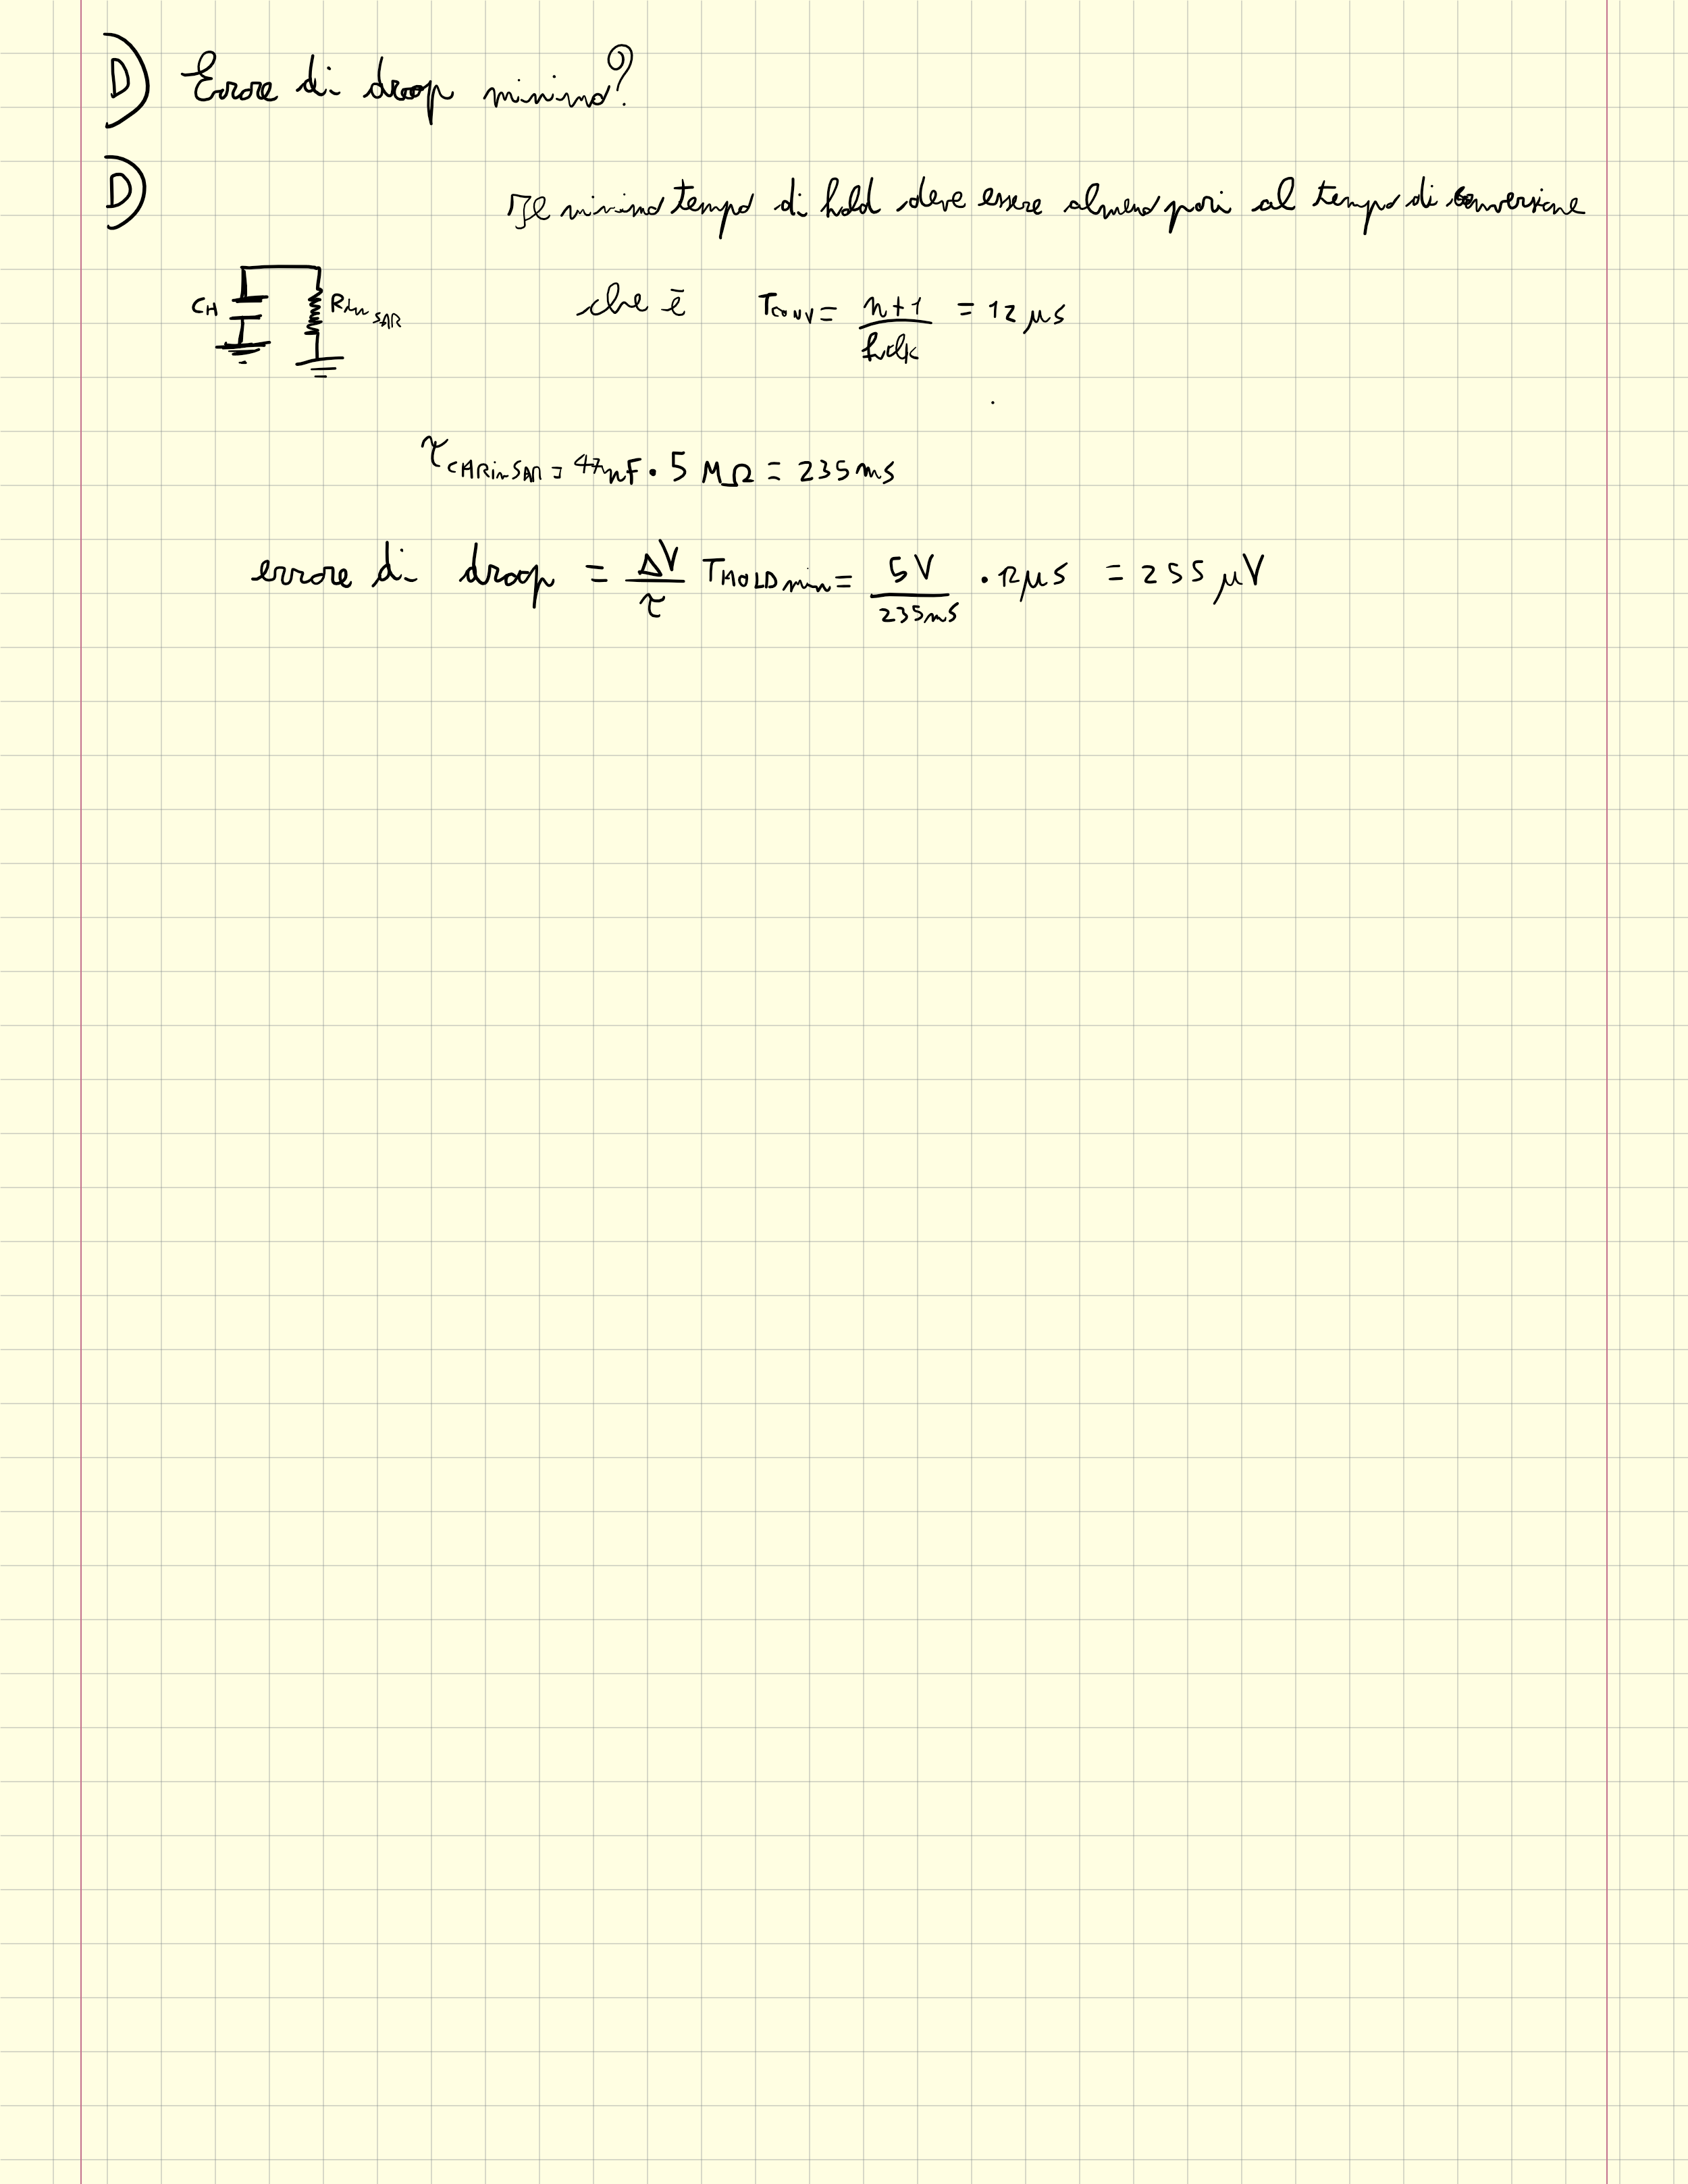 D) Errore di droop minimo?
D)
Il minimo tempo di hold deve essere almeno pari al tempo di conversione
CH Rin SAR
che è Tconv = n+1 / fclk = 12 μs
τ CHRinSAR = 47nF · 5 MΩ = 235ms
errore di droop = ΔV / τ THOLD min = 5V / 235ms · 12μs = 255 μV